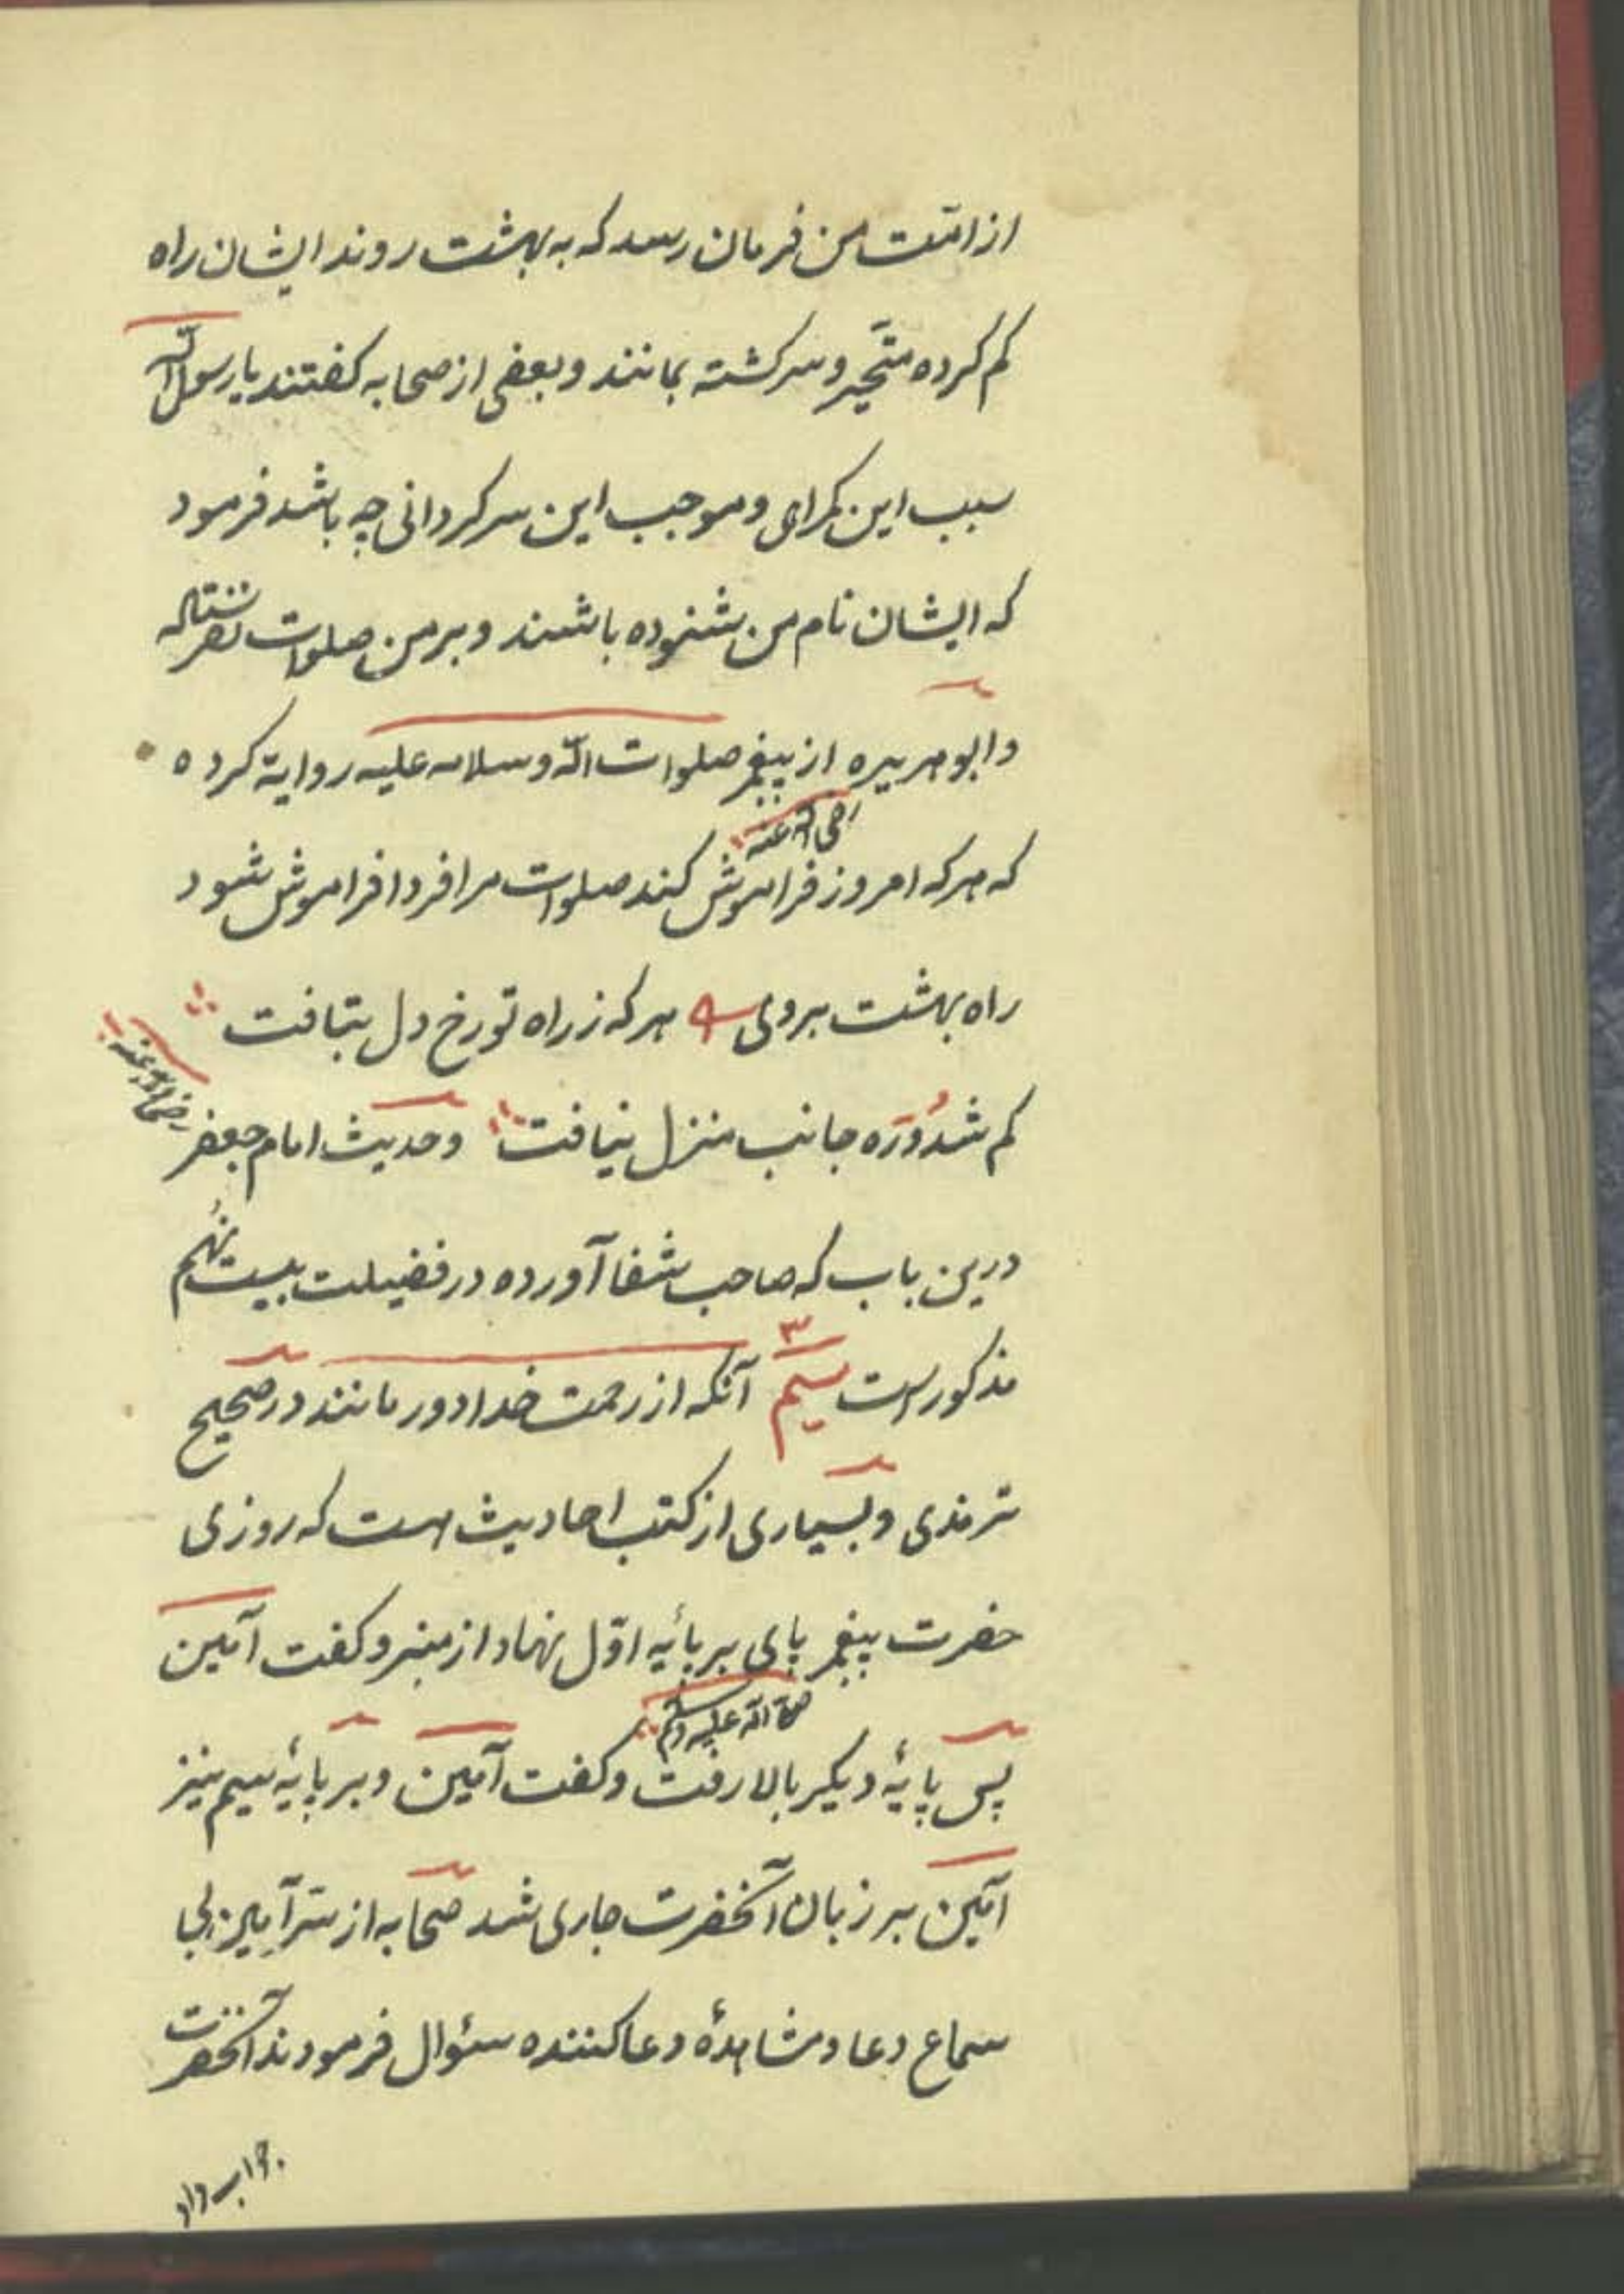 از امّت من فرمان رسد که به بهشت روند ایشان راه
کم کرده متحیّر و سرکشته بمانند و بعضی از صحابه کفتند یا رسول اللّه
سبب این کمراهی و موجب این سرکردانی چه باشد فرمود
که ایشان نام من شنوده باشند و بر من صلوات نفرستاده
وابو هریره از پیغمبر صلوات اللّه و سلامه علیه روایة کرده
رضی اللّه عنه
که هرکه امروز فراموش کند صلوات مرا فردا فراموش شود
راه بهشت بروی هرکه ز راه تو رخ دل بتافت
کم شدُ و رَه جانب منزل نیافت وحدیث امام جعفر
رضی اللّه عنه
درین باب که صاحب شفا آورده در فضیلت بیست نهُم
مذکور است سیم آنکه از رحمت خدا دور مانند در صحیح
۳
ترمذی و بسیاری از کتب احادیث هست که روزی
حضرت پیغمبر پای بر پائیه اوّل نهاد از منبر و کفت آمین
صلی اللّه علیه وسلم
پس پایهٔ دیکر بالا رفت و کفت آمین و بر پایهٔ سیم نیز
آمین بر زبان آنحضرت جاری شد صحابه از سرّ آمین بی
سماع دعا و مشاهدهٔ دعا کننده سئوال فرمودند آنحضرت
جواب داد